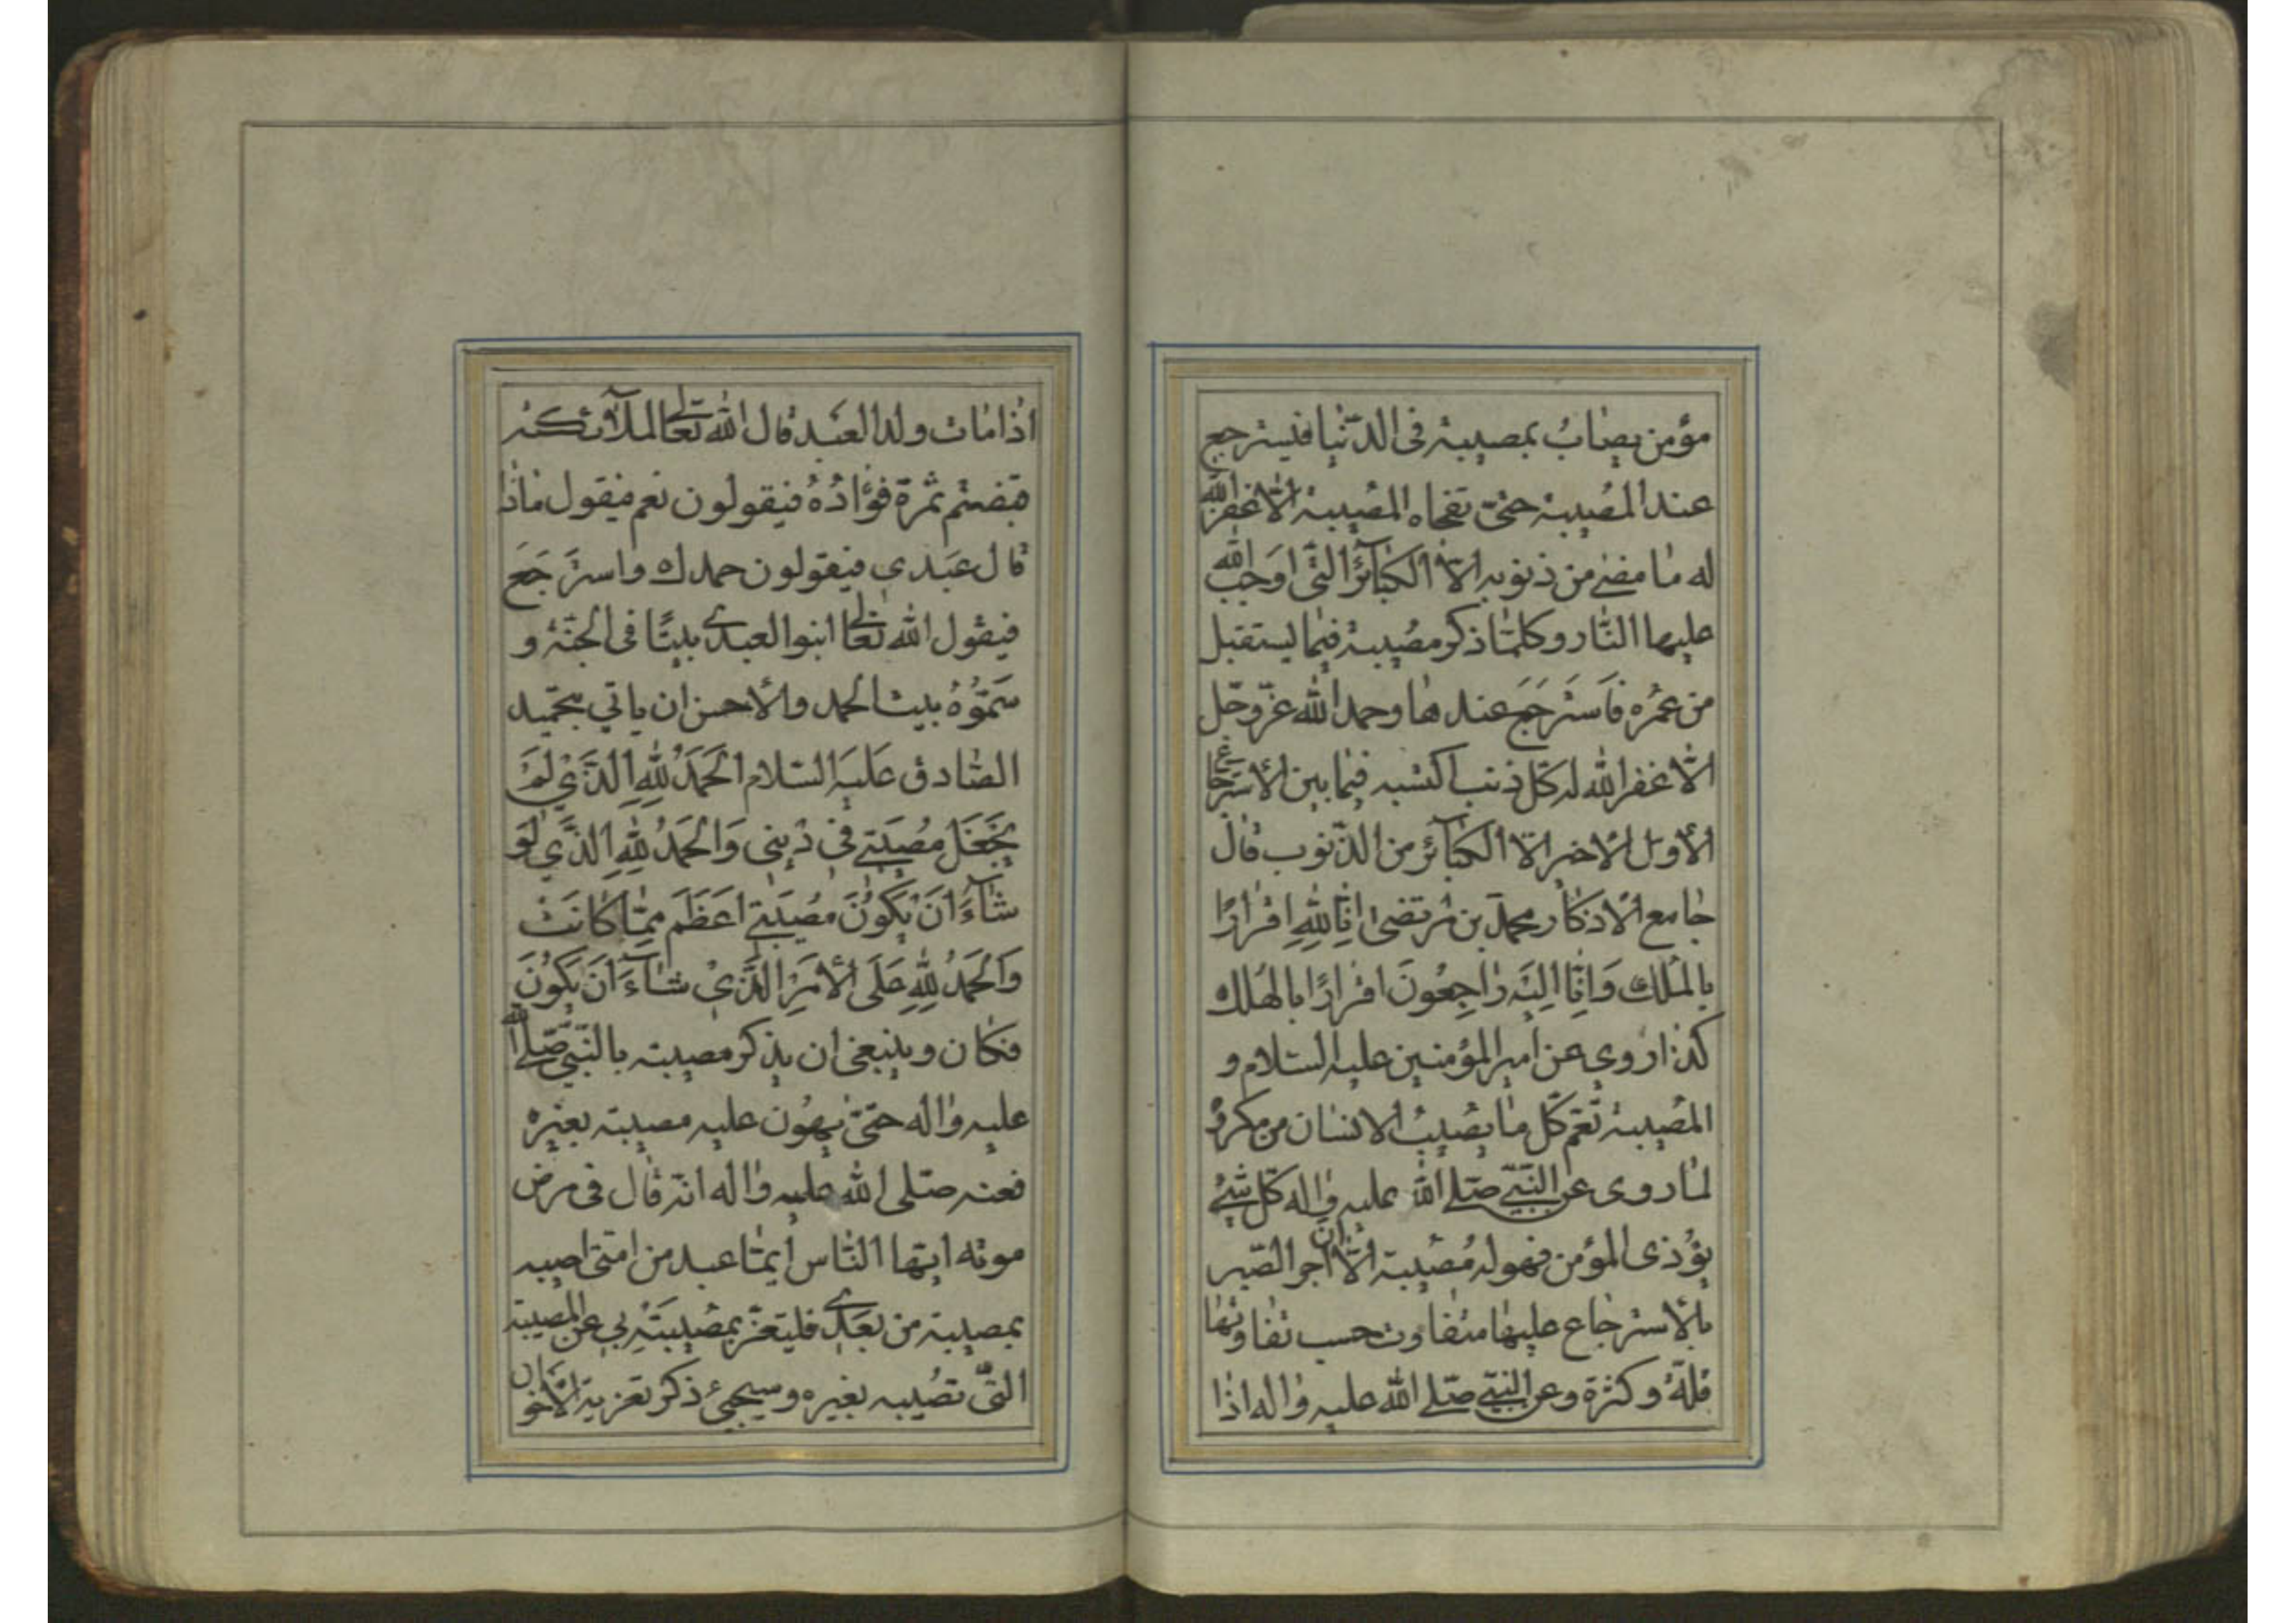 مؤمن يصاب بمصيبة فى الدّنيا فيسترجع
عند المصيبة حتىّ تفجاه المصيبة الّا غفر الله
له ما مضى من ذنوبه الّا الكبآئر التّى اوجب الله
عليها النّار وكلّما ذكر مصيبة فيما يستقبل
من عمره فاسترجع عندها وحمد الله عزّ وجّل
الّا غفر الله له كلّ ذنب اكتسبه فيما بين الأسترجاع
الأوّل الأخير الّا الكبآئر من الذّنوب قال
جامع الأذكار محمّد بن مرتضى اِنّا لِلّٰهِ اقرارًا
بالملك وَاِنّا اِليَه رٰاجِعُونَ اقرارًا بالهلك
كذا روى عن امير المؤمنين عليه السّلام و
المصيبة تعّم كلّ ما يصيب الانسان من مكروه
لما روى عن النّبّى صلّى الله عليه واله كلّ شئ
يؤذى المؤمن فهو له مُصيبة الّا ان اجر الصّبر
بالأسترجاع عليها متفاوت حسب تفاوتها
قلّة وكثرة وعن النبّى صلّى الله عليه واله اذا
اذا مات ولد العبد قال الله تعالى لملآئكته
قبضتم ثمرة فؤاده فيقولون نعم فيقول ماذا
قال عبدي فيقولون حمدك واسترجَعَ
فيقول الله تعالى ابنوا لعبدي بيتًا فى الجنّة و
سَمّوُهُ بيت الحمد والأحسن ان ياتي بتحميد
الصّادق عَليَه السّلام اَلحَمَدُ لِلّٰهِ الَّذَي لَم
يَجَعَل مُصيَبَتي في ديٖني وَالحَمَدُ لِلّٰهِ الَّذَي لَو
شآءَ اَن يَكوُنَ مصُيَبَتي اعَظَمَ مِمّا كانَت
وَالحَمَدُ لِلّٰهِ عَلَى الأَمرِ الَّذَي شآءَ اَن يَكوُنَ
فكان وينبغى ان يذكر مصيبته بالنّبّي صلّى الله
عليه واله حتىّ يهوُن عليه مصيبته بغيره
فعنه صلّى الله عليه واله انّه قال فى مرض
موته ايّها النّاس ايمّا عبد من امتّى اصيب
بمصيبة من بعَدي فليتعزّ بمصُيبَتِه بي عن المصيبة
التّى تصُيبه بغيره وسيجيئ ذكر تعزية الأخوان